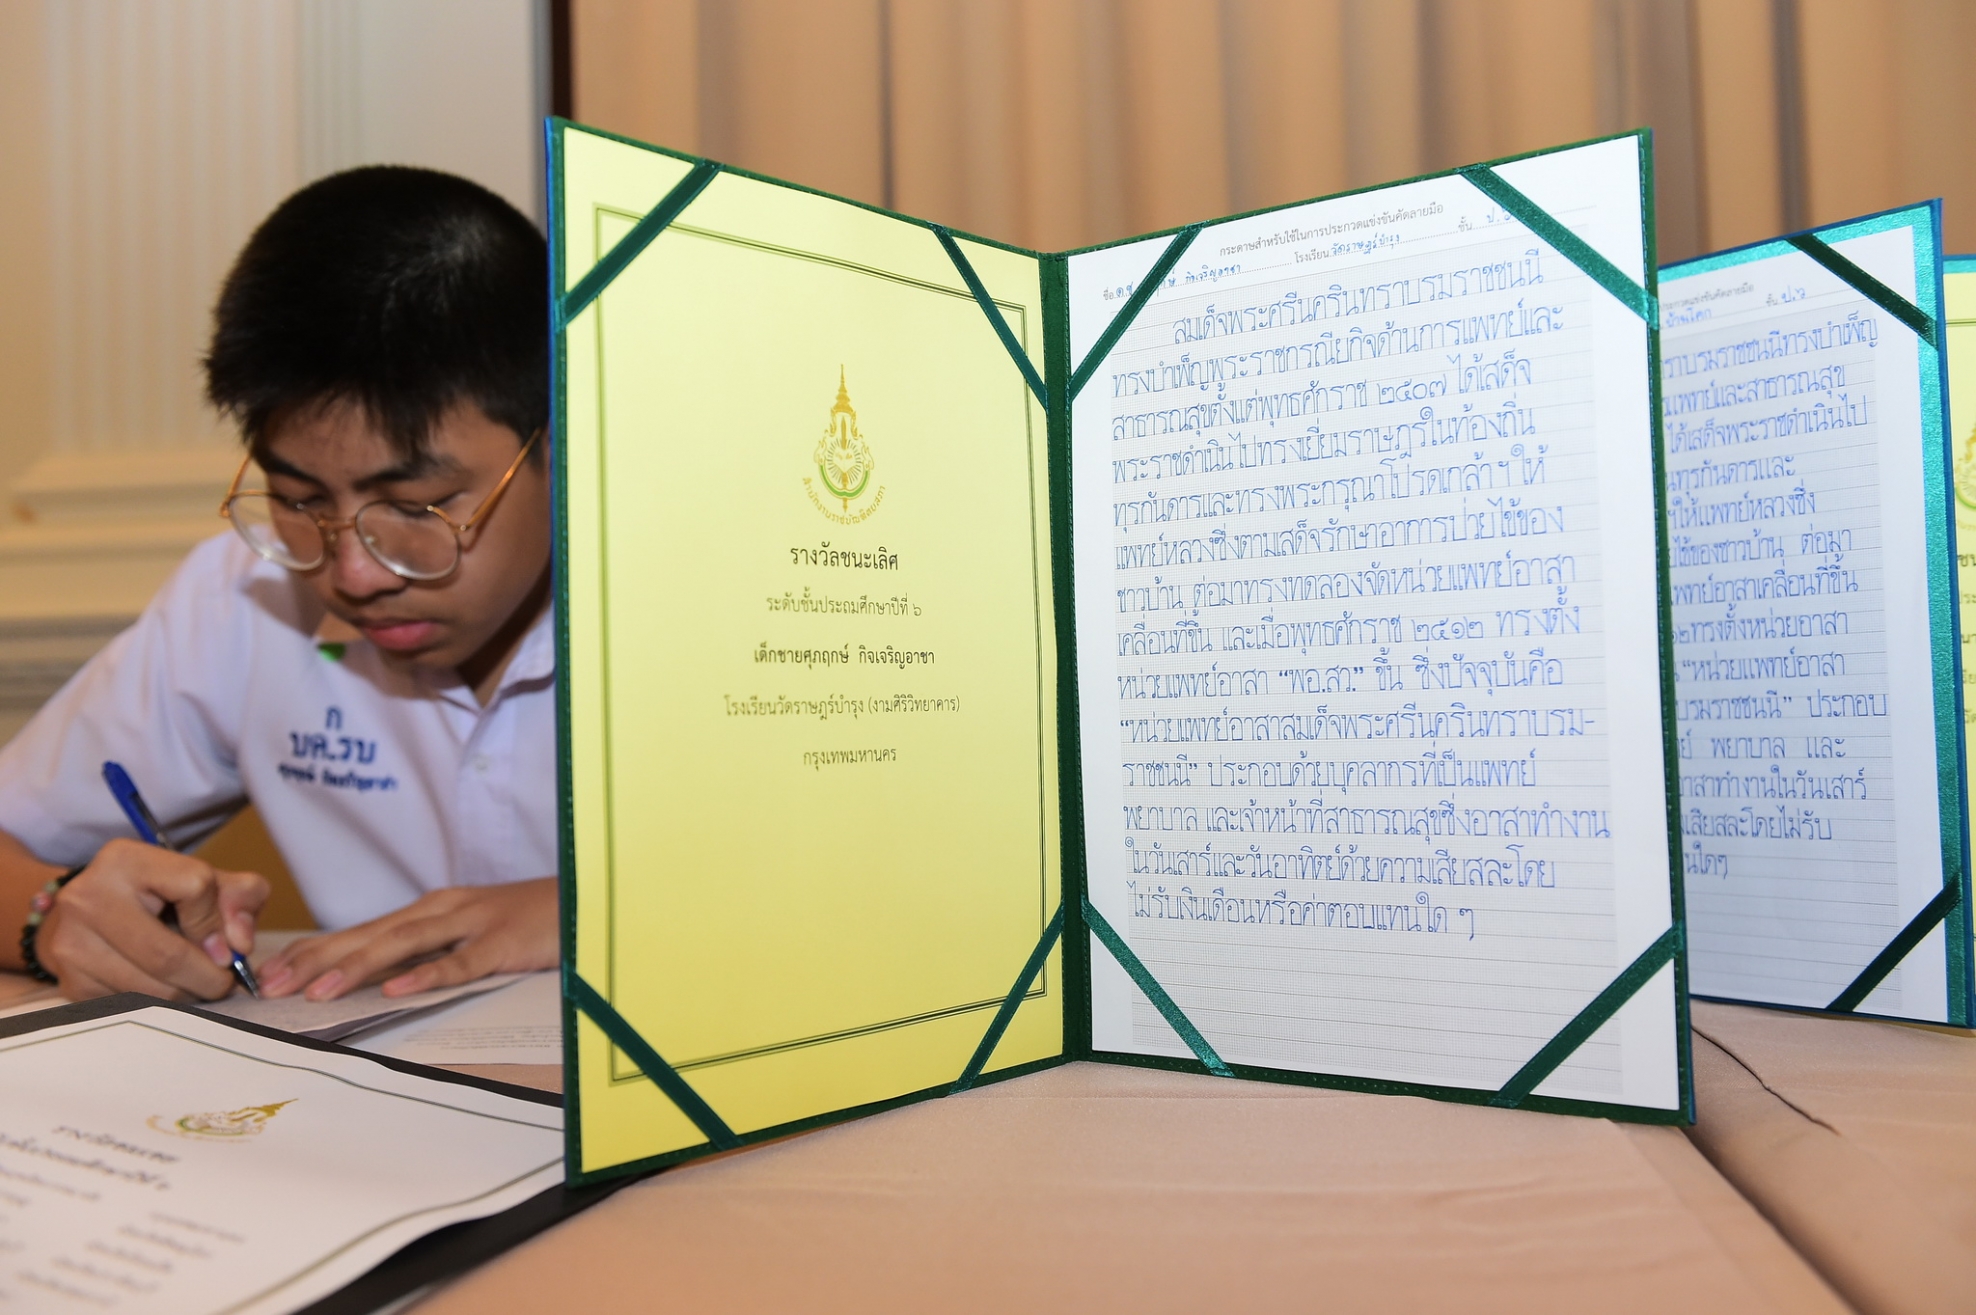 ก
บค.รบ
สำนักงานราชบัณฑิตยสภา
รางวัลชนะเลิศ
ระดับชั้นประถมศึกษาปีที่ ๖
เด็กชายศุภฤกษ์ กิจเจริญอาชา
โรงเรียนวัดราษฎร์บำรุง (งามศิริวิทยาคาร)
กรุงเทพมหานคร
กระดาษสำหรับใช้ในการประกวดแข่งขันคัดลายมือ
ชื่อ ด.ช. กิจเจริญอาชา โรงเรียน วัดราษฎร์บำรุง ชั้น ป.๖
สมเด็จพระศรีนครินทราบรมราชชนนี
ทรงบำเพ็ญพระราชกรณียกิจด้านการแพทย์และ
สาธารณสุขตั้งแต่พุทธศักราช ๒๕๐๗ ได้เสด็จ
พระราชดำเนินไปทรงเยี่ยมราษฎรในท้องถิ่น
ทุรกันดารและทรงพระกรุณาโปรดเกล้าฯ ให้
แพทย์หลวงซึ่งตามเสด็จรักษาอาการป่วยไข้ของ
ชาวบ้าน ต่อมาทรงทดลองจัดหน่วยแพทย์อาสา
เคลื่อนที่ขึ้น และเมื่อพุทธศักราช ๒๕๑๒ ทรงตั้ง
หน่วยแพทย์อาสา “พอ.สว.” ขึ้น ซึ่งปัจจุบันคือ
“หน่วยแพทย์อาสาสมเด็จพระศรีนครินทราบรม-
ราชชนนี” ประกอบด้วยบุคลากรที่เป็นแพทย์
พยาบาล และเจ้าหน้าที่สาธารณสุขซึ่งอาสาทำงาน
ในวันเสาร์และวันอาทิตย์ด้วยความเสียสละโดย
ไม่รับเงินเดือนหรือค่าตอบแทนใด ๆ
ชั้น ป.๖
ราบรมราชชนนีทรงบำเพ็ญ
แพทย์และสาธารณสุข
ได้เสด็จพระราชดำเนินไป
ทุรกันดารและ
ฯให้แพทย์หลวงซึ่ง
ไข้ของชาวบ้าน ต่อมา
แพทย์อาสาเคลื่อนที่ขึ้น
๒ทรงตั้งหน่วยอาสา
“หน่วยแพทย์อาสา
บรมราชชนนี” ประกอบ
พยาบาล และ
อาสาทำงานในวันเสาร์
เสียสละโดยไม่รับ